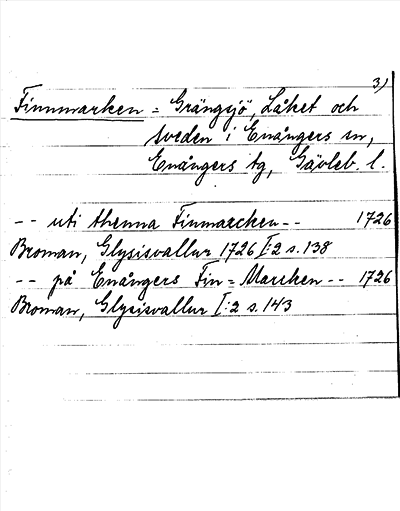 3)
Finnmarken = Grängsjö, Låket och
Sveden i Enångers sn,
Enångers tg, Gävleb. l.
-- uti thenna Finmarcken -- 1726
Broman, Glysisvallur 1726 I:2 s. 138
-- på Enångers Fin=Marcken -- 1726
Broman, Glysisvallur I:2 s. 143